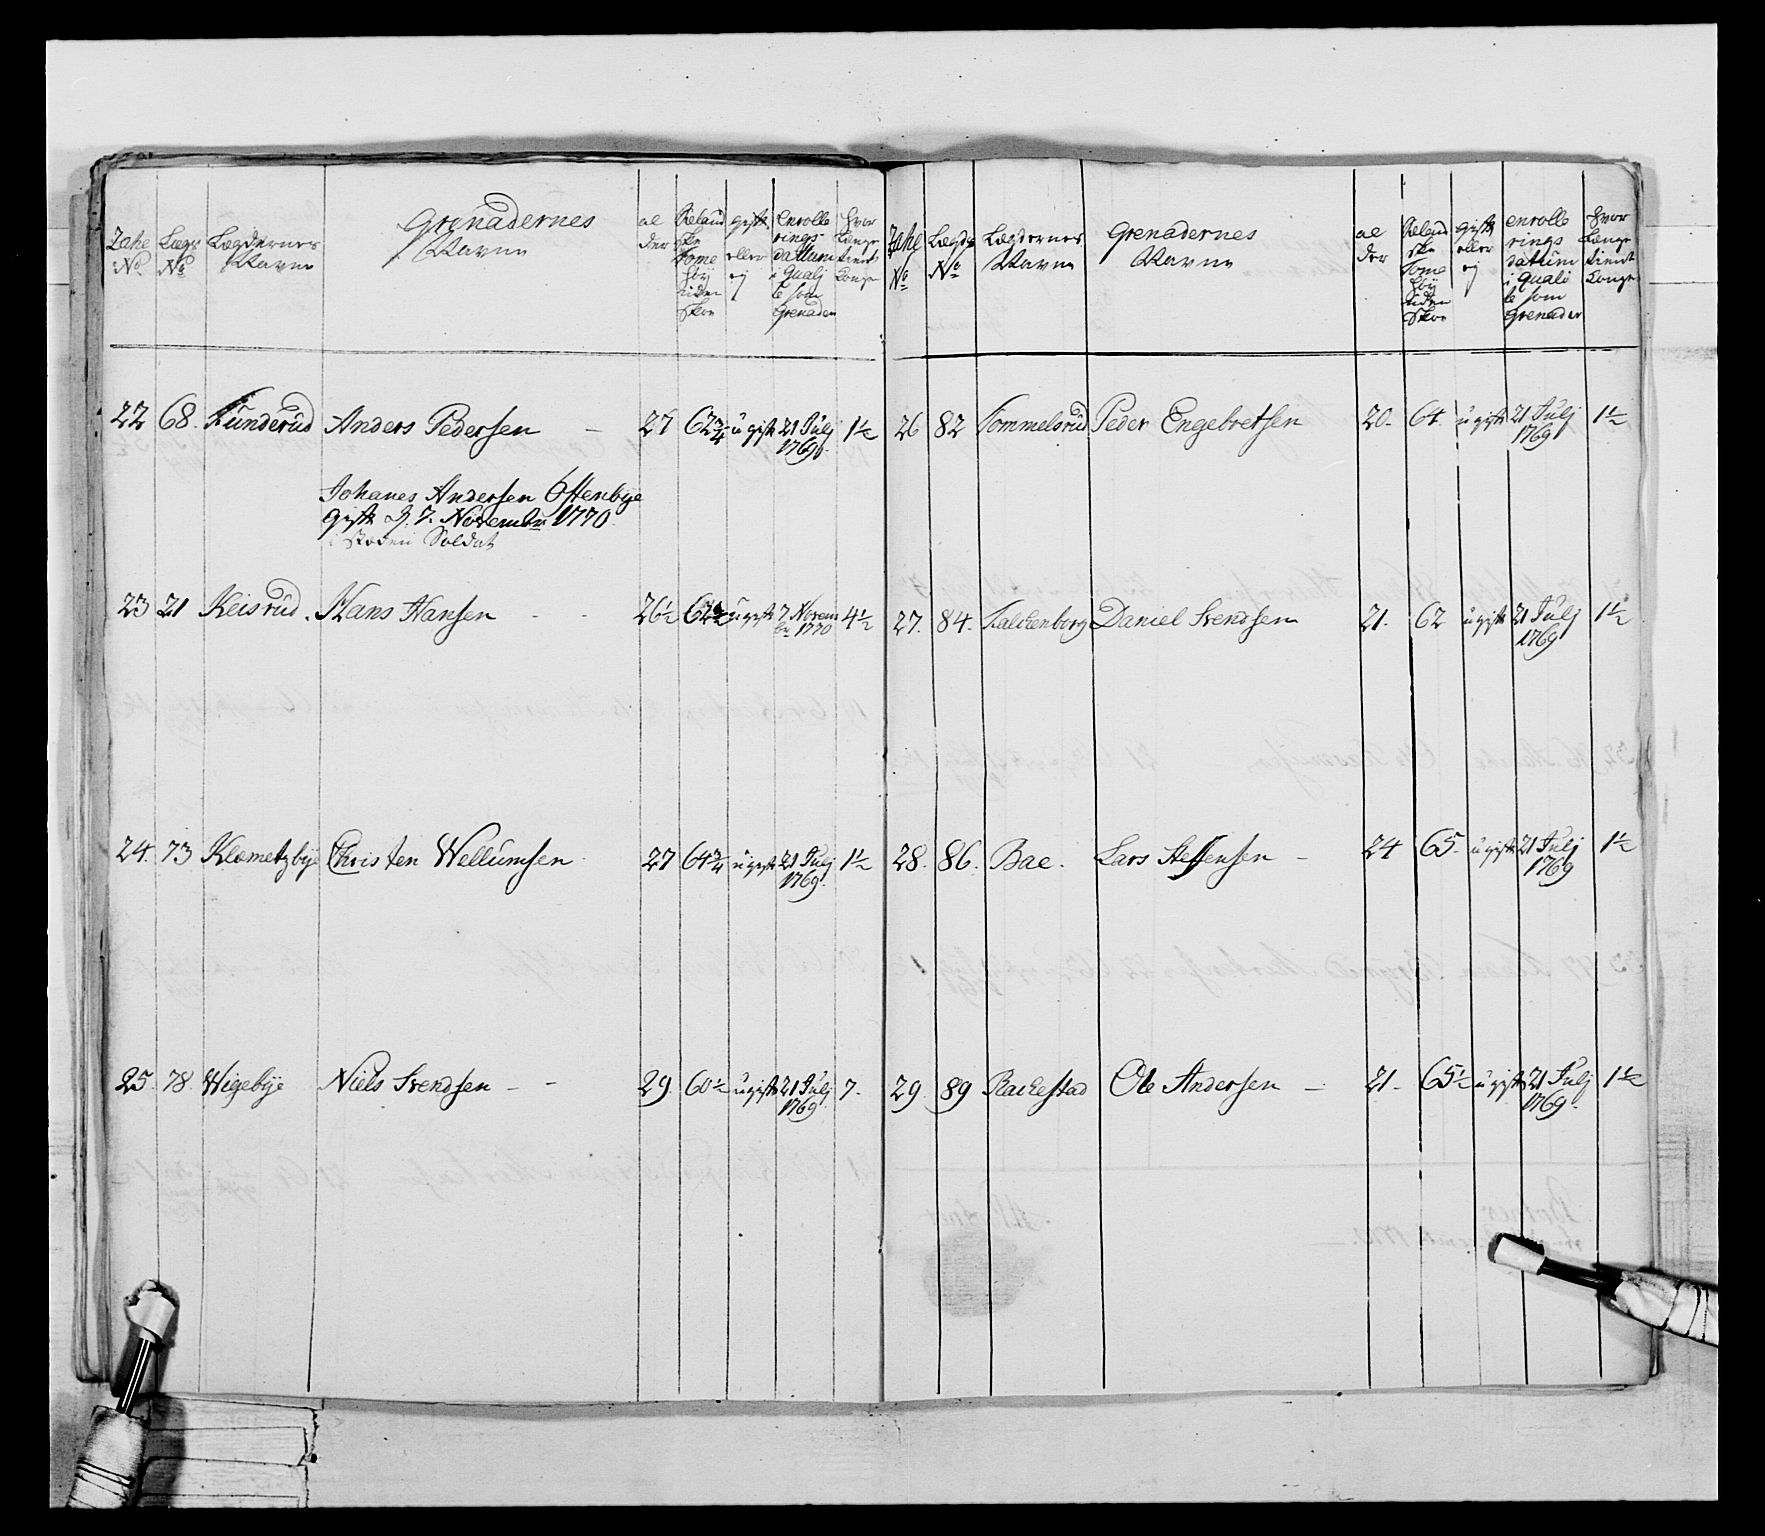 Zahl No
Lægs No
Lægdernes Navne
Grenadernes Navne
al der
Reland ske Tome höy uden Skoe
gift eller ej
enrolle rings dattum i Quali te som Grenader
hvor Længe tient Konge
22 68. Kunderud Anders Pedersen - 27 62 3/4 ugift 21 Julj 1769 1 1/2
Johanes Andersen Ostenbye
gift d. 7. Novembr 1770.
i steden Soldat
23 21 Keisrud. Hans Hansen - - 26 1/2 62 1/2 ugift 7 Novem br 1770 4 1/2
24. 73 Klemetzbye Christen Wellumsen 27 64 3/4 ugift 21 Julj 1769. 1 1/2
25. 78 Wigebye Niels Svendsen - - 29. 60 1/2 ugift 21 Julj 1769. 7.
Zahl No
Lægds No
Lægdernes Navne
Grenadernes Navne
al der
Reland ske Tome höy uden Skoe
gift eller ej
enrolle rings dattum i Quali te som Grenader
hvor Længe tient Konge
26 82 Tommelsrud Peder Engebretsen 20. 64 ugift 21 Julj 1769 1 1/2
27. 84. Falckenborg Daniel Svendsen 21. 62 ugift 21 Julj 1769 1 1/2
28. 86. Bae. Lars Steffensen - 24 65. ugift 21 Julj 1769 1 1/2
29. 89 Rackestad Ole Andersen - 21. 65 1/2 ugift 21 Julj 1769. 1 1/2